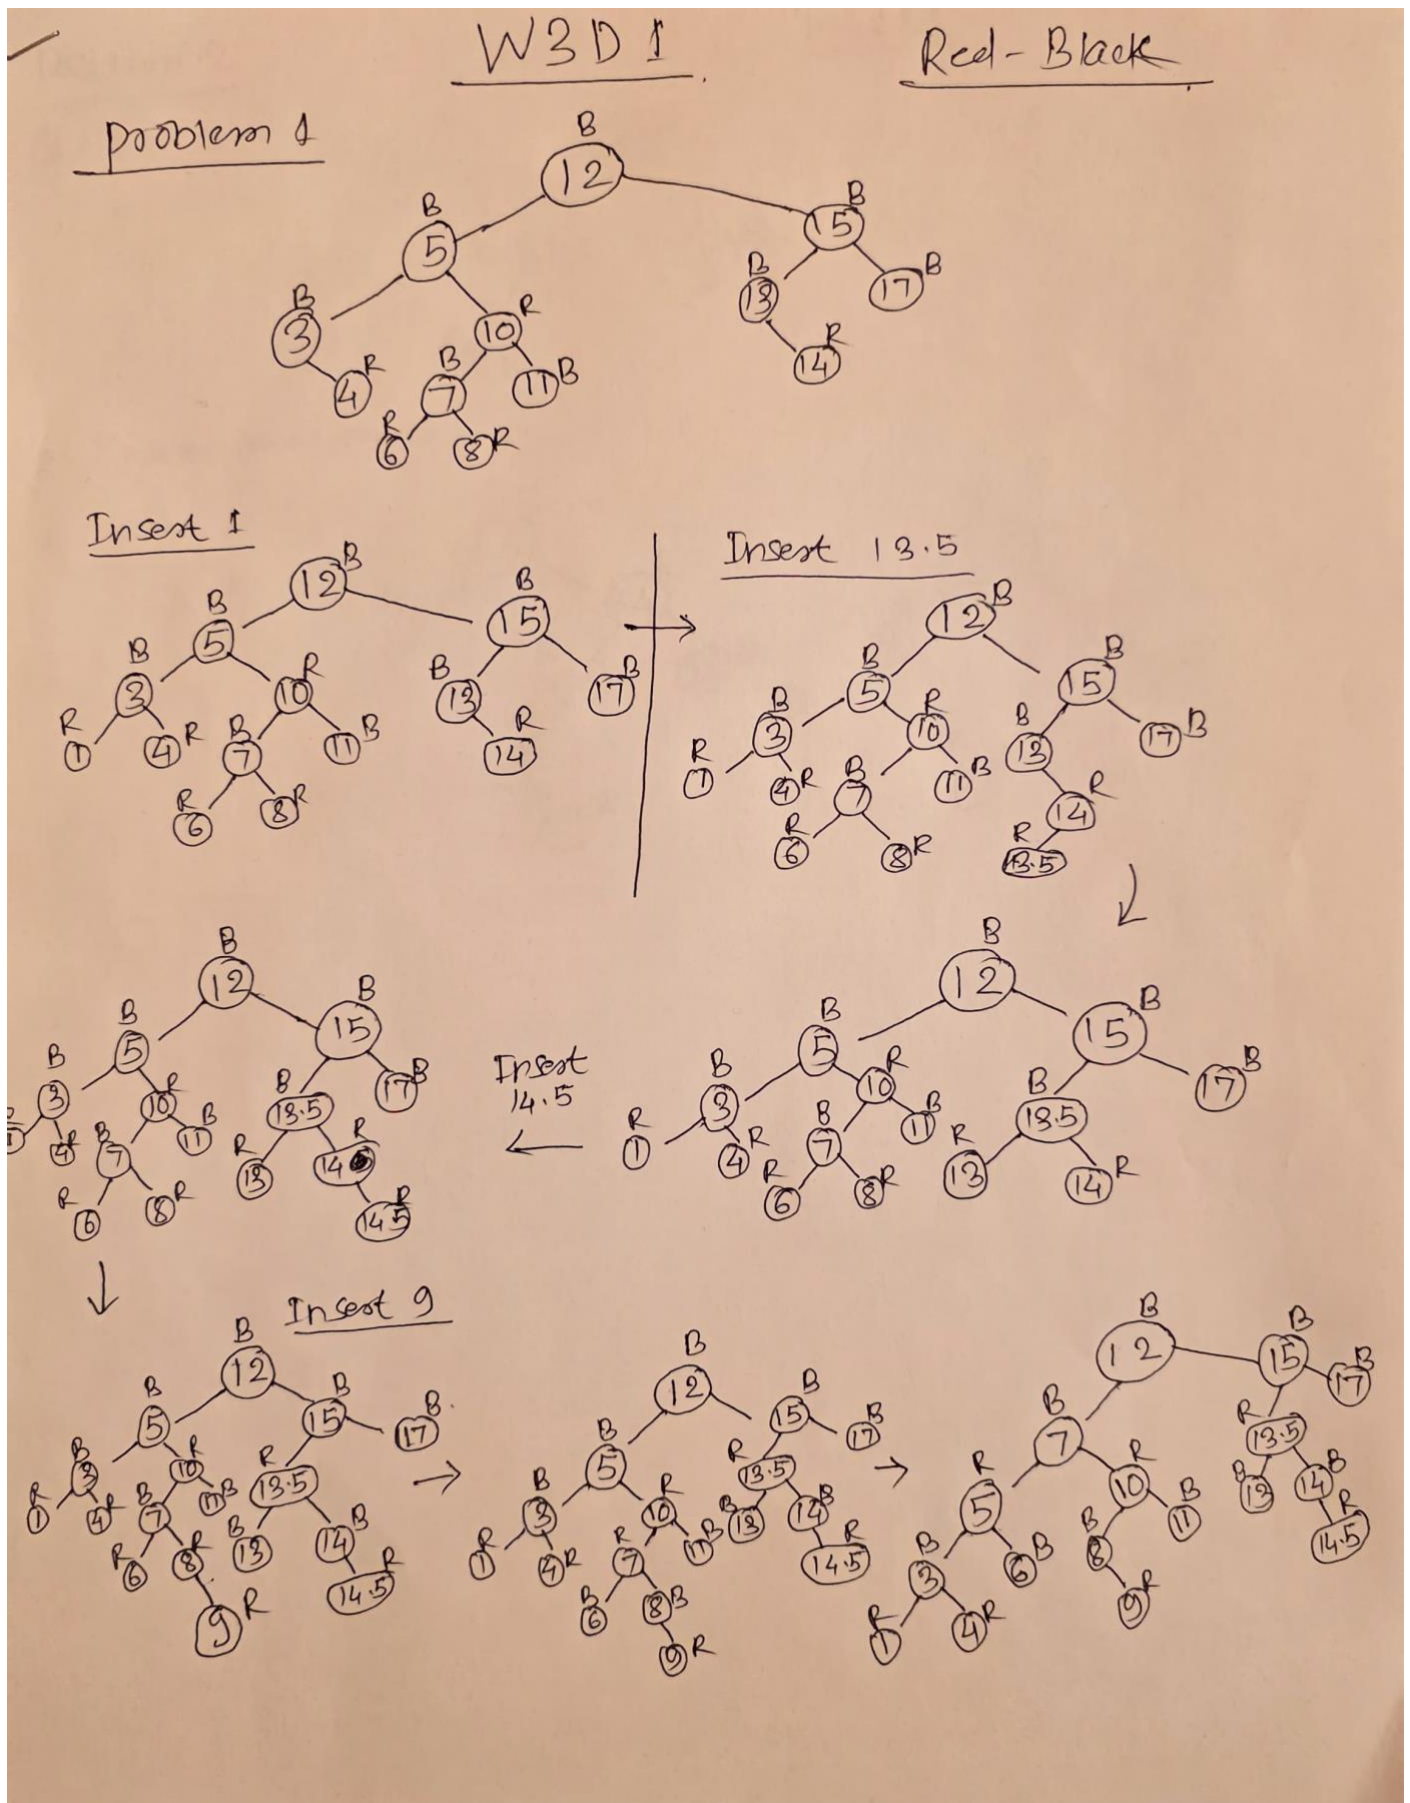 W3D1
Red-Black
Problem 1
B
12
B
5
B
15
B
3
R
10
B
13
B
17
R
4
B
7
11 B
R
14
R
6
8 R
Insert 1
12 B
B
5
B
15
B
3
R
10
B
13
B
17
R
1
4 R
B
7
11 B
R
14
R
6
8 R
Insert 13.5
12 B
B
5
B
15
B
3
R
10
B
13
17 B
R
1
4 R
B
7
11 B
R
14
R
6
8 R
R
13.5
B
12
B
5
B
15
B
3
R
10
B
13.5
17 B
4 R
B
7
11 B
R
13
R
14
R
6
8 R
R
14.5
Insert
14.5
B
12
B
5
B
15
B
3
R
10
B
13.5
17 B
R
1
4 R
B
7
11 B
R
13
14 R
R
6
8 R
Insert 9
B
12
B
5
B
15
B
17
B
3
R
10
R
13.5
R
1
4 R
B
7
11 B
B
13
14 B
R
6
8 R
14.5 R
9 R
B
12
B
5
B
15
B
17
B
3
R
10
R
13.5
R
1
4 R
R
7
11 B
B
13
14 B
B
6
8 B
14.5 R
9 R
B
12
B
7
B
15
B
17
R
5
R
10
R
13.5
B
3
6 B
B
8
11 B
B
13
14 B
R
1
4 R
9 R
R
14.5